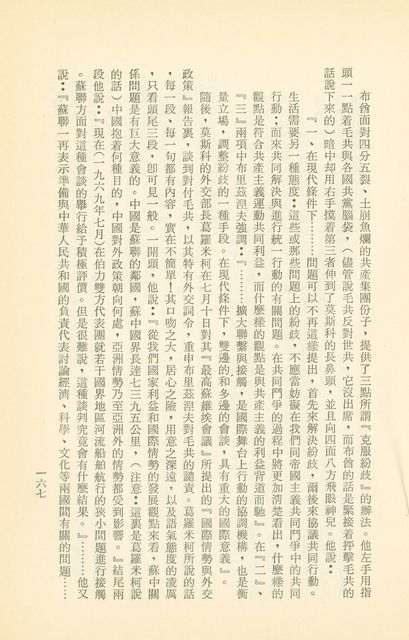 布酋面對四分五裂、土崩魚爛的共產集團份子，提供了三點所謂『克服紛歧』的辦法。他左手用指
頭一一點着毛共與各國共黨腦袋，（儘管說毛共反對世共，它沒出席，而布酋的話是緊接着抨擊毛共的
話說下來的）暗中却用右手摸着第三者伸到了莫斯科的長鼻頭，並且向四面八方飛眼神兒。他說：
『一、在現代條件下………問題可以不再這樣提出，首先來解決紛歧，爾後來協議共同行動。
生活需要另一種態度：這些或那些問題上的紛歧，不應當妨礙在我們同帝國主義共同鬥爭中的共同
行動；而來共同解決與進行統一行動的有關問題。在共同鬥爭的過程中將更加清楚看出，什麼樣的
觀點是符合共產主義運動共同利益，而什麼樣的觀點是與共產主義的利益背道而馳』。在『二』、
『三』兩項中布里茲湼夫強調：『………擴大聯擊與接觸，是國際舞台上行動的協調機構，也是衡
量立場，調整紛歧的一種手段。在現代條件下，雙邊的和多邊的會談，具有重大的國際意義』。
隨後，莫斯科的外交部長葛羅米柯在七月十日對其『最高蘇維埃會議』所提出的『國際情勢與外交
政策』報告裏，談到對付毛共，以其特有外交詞令，重申布里茲湼夫對毛共的譴責。葛羅米柯所說的話
，每一段、每一句都有內容，實在不簡單！其口吻之大，居心之險，用意之深遠，以及語氣態度的凌厲
，只看頭尾三段，卽可見一般。一開頭，他說：『從我們國家利益和國際情勢的發展觀點來看，蘇中關
係問題是有巨大意義的。中國是蘇聯的鄰國，蘇中國界長達七三九五公里，（注意：這裏是葛羅米柯說
的話）中國抱着何種目的，中國對外政策朝向何處，亞洲情勢乃至亞洲外的情勢都受到影響。』結尾兩
段他說：『現在（一九六九年七月）在伯力雙方代表團就若干國界地區河流船舶航行的狹小問題進行接觸
。蘇聯方面對這種會談的舉行給予積極評價。但是很難說，這種談判究竟會有什麼結果。』………他又
說：『蘇聯一再表示準備與中華人民共和國的負責代表討論經濟、科學、文化等兩國間有關的問題……
一六七